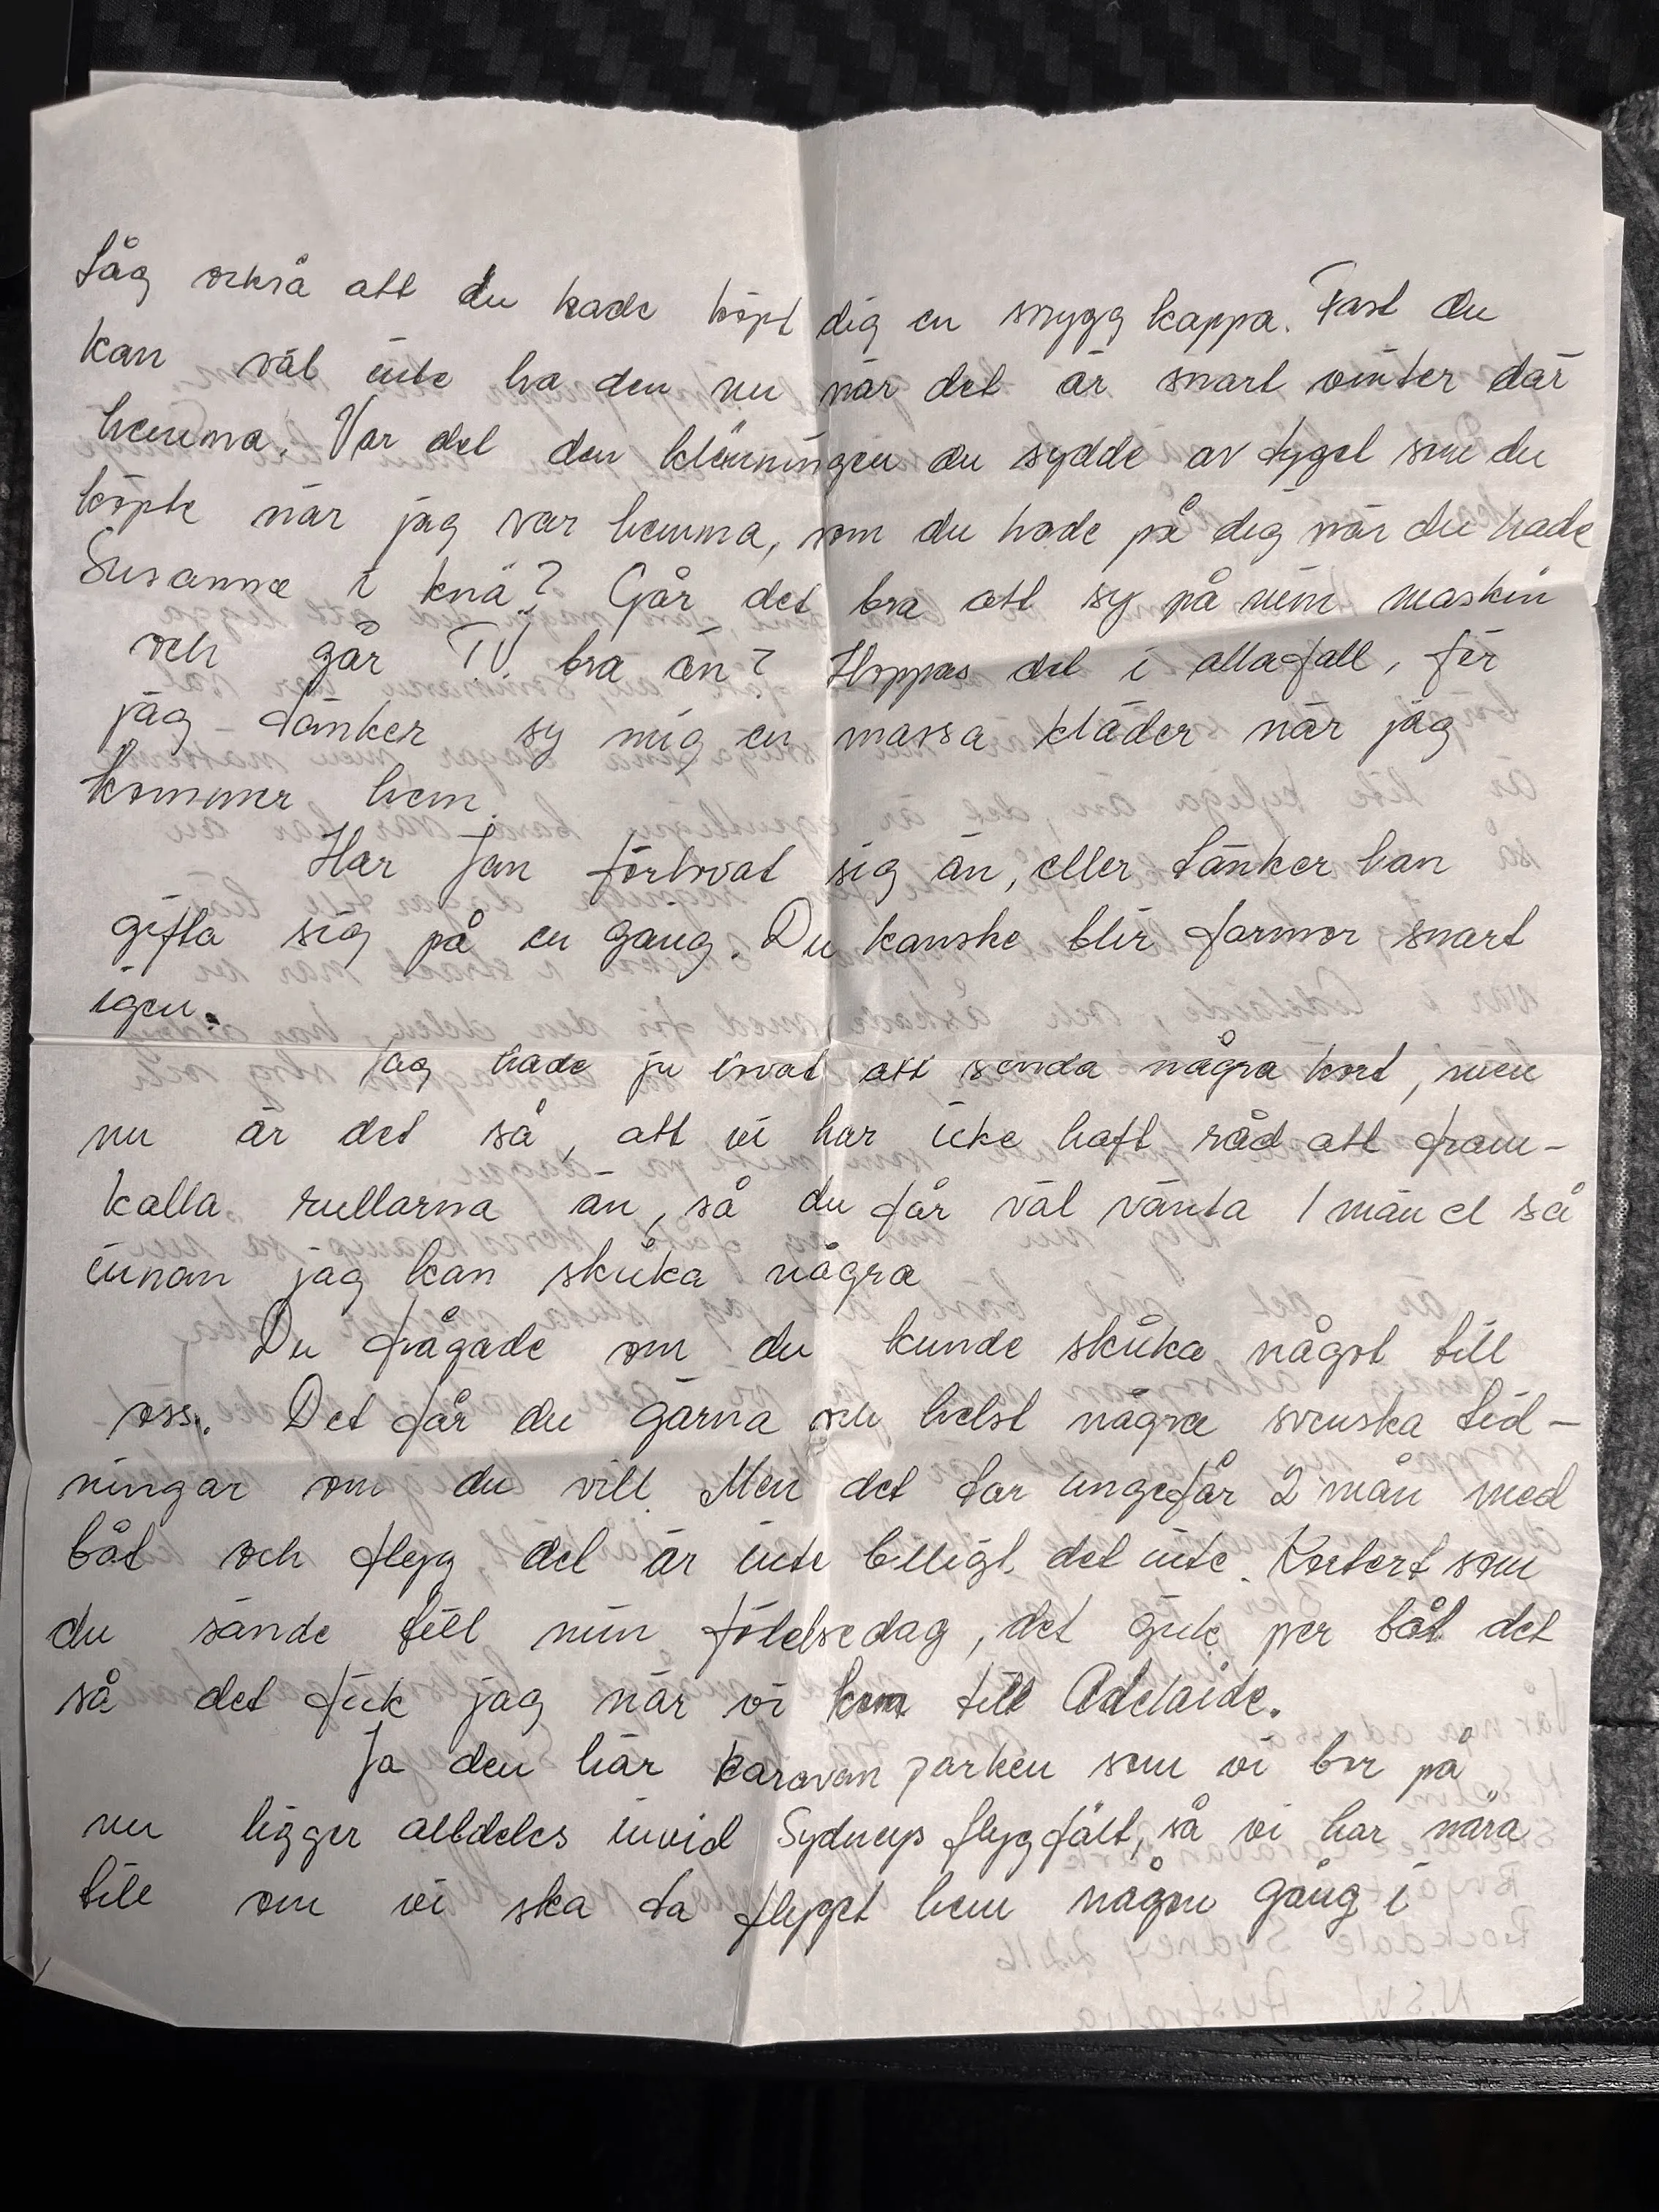 Såg också att du hade köpt dig en snygg kappa. Fast du
kan väl inte ha den nu när det är snart vinter där
hemma. Var det den klänningen du sydde av tyget som du
köpte när jag var hemma, som du hade på dig när du hade
Susanne i knä? Går det bra att sy på min maskin
och går TV bra än? Hoppas det i allafall, för
jag tänker sy mig en massa kläder när jag
kommer hem.
Har Jan förlovat sig än, eller tänker han
gifta sig på en gång. Du kanske blir farmor snart
igen.
Jag hade ju lovat att sända några kort, men
nu är det så, att vi har icke haft råd att fram-
kalla rullarna än, så du får väl vänta 1 mån el så
innan jag kan skicka några
Du frågade om du kunde skicka något till
oss. Det får du gärna och helst några svenska tid-
ningar om du vill. Men det tar ungefär 2 mån med
båt och flyg det är inte billigt det inte. Kortet som
du sände till min födelsedag, det gick per båt det
så det fick jag när vi kom till Adelaide.
Ja den här karavan parken som vi bor på
nu ligger alldeles invid Sydneys flygfält, så vi har nära
till om vi ska ta flyget hem någon gång i